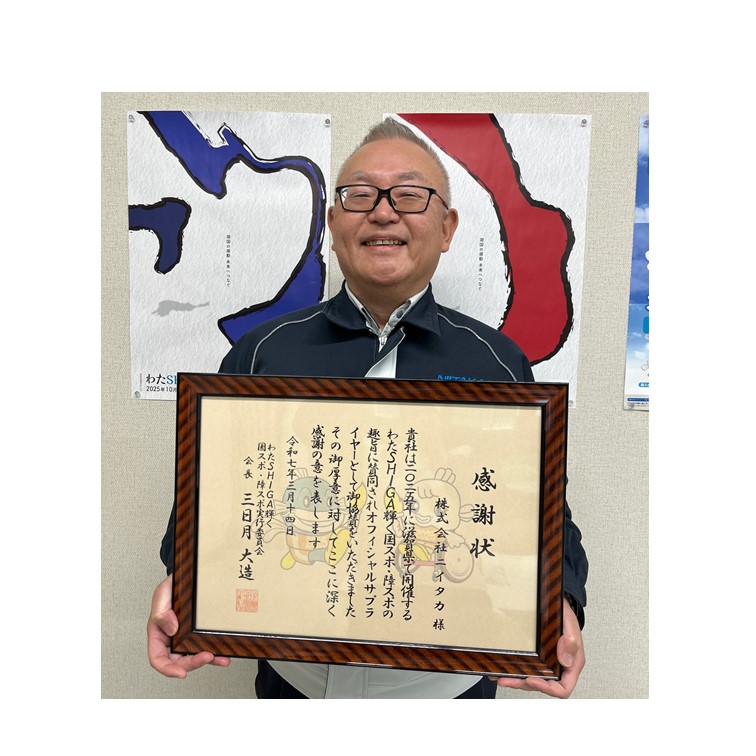 感謝状
株式会社ニイタカ 様
貴社は二〇二五年に滋賀県で開催する
わたSHIGA輝く国スポ・障スポの
趣旨に賛同されオフィシャルサプラ
イヤーとして御協賛をいただきました
その御厚意に対してここに深く
感謝の意を表します
令和七年三月十四日
わたSHIGA輝く
国スポ・障スポ実行委員会
会長 三日月 大造
わたSH
2025年10月
NIITAKA